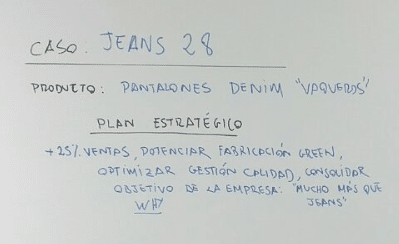 CASO: JEANS 28
PRODUCTO: PANTALONES DENIM "VAQUEROS"
PLAN ESTRATÉGICO
+25% VENTAS, POTENCIAR FABRICACIÓN GREEN,
OPTIMIZAR GESTIÓN CALIDAD, CONSOLIDAR
OBJETIVO DE LA EMPRESA: "MUCHO MÁS QUE
WHY JEANS"